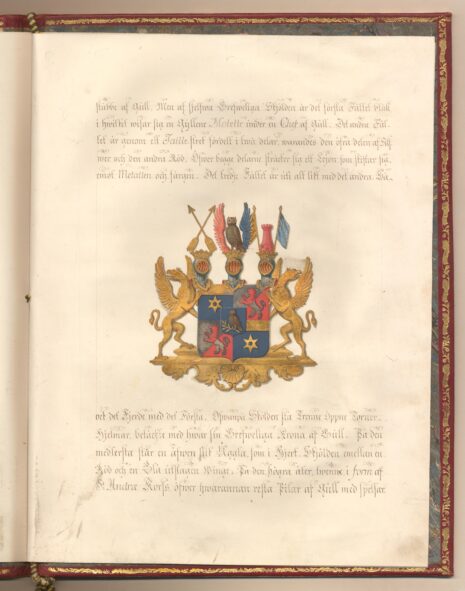 stubbe af Gull. Men af sielfwa Grefweliga Skölden är det första Fältet blåt
i hwilcket wisar sig en Gyllene Molette under en Chef af Gull. Det andra Fäl-
tet är genom ett streck fördelt i twå delar, warandes den öfra delen af Silf
wer och den andra Röd. Öfwer bägge delarne sträcker sig ett Leyon som skiftar sig
emot Metallen och färgen. Det tredje Fältet är uti alt likt med det andra. Så-
wel det Fierde med det Första. Ofwanpå Skölden stå Trenne Öppne Torner-
Hjelmar, betäckta med hwar sin Grefweliga Krona af Gull. På den
medlersta står en äfwen slik Uggla, som i Hjert Skölden emellan en
Röd och en Blå Winge. På den högra åter, twenne i form af
St. Andreæ Korss öfwer hwarannan resta Pilar af Gull med spetsar